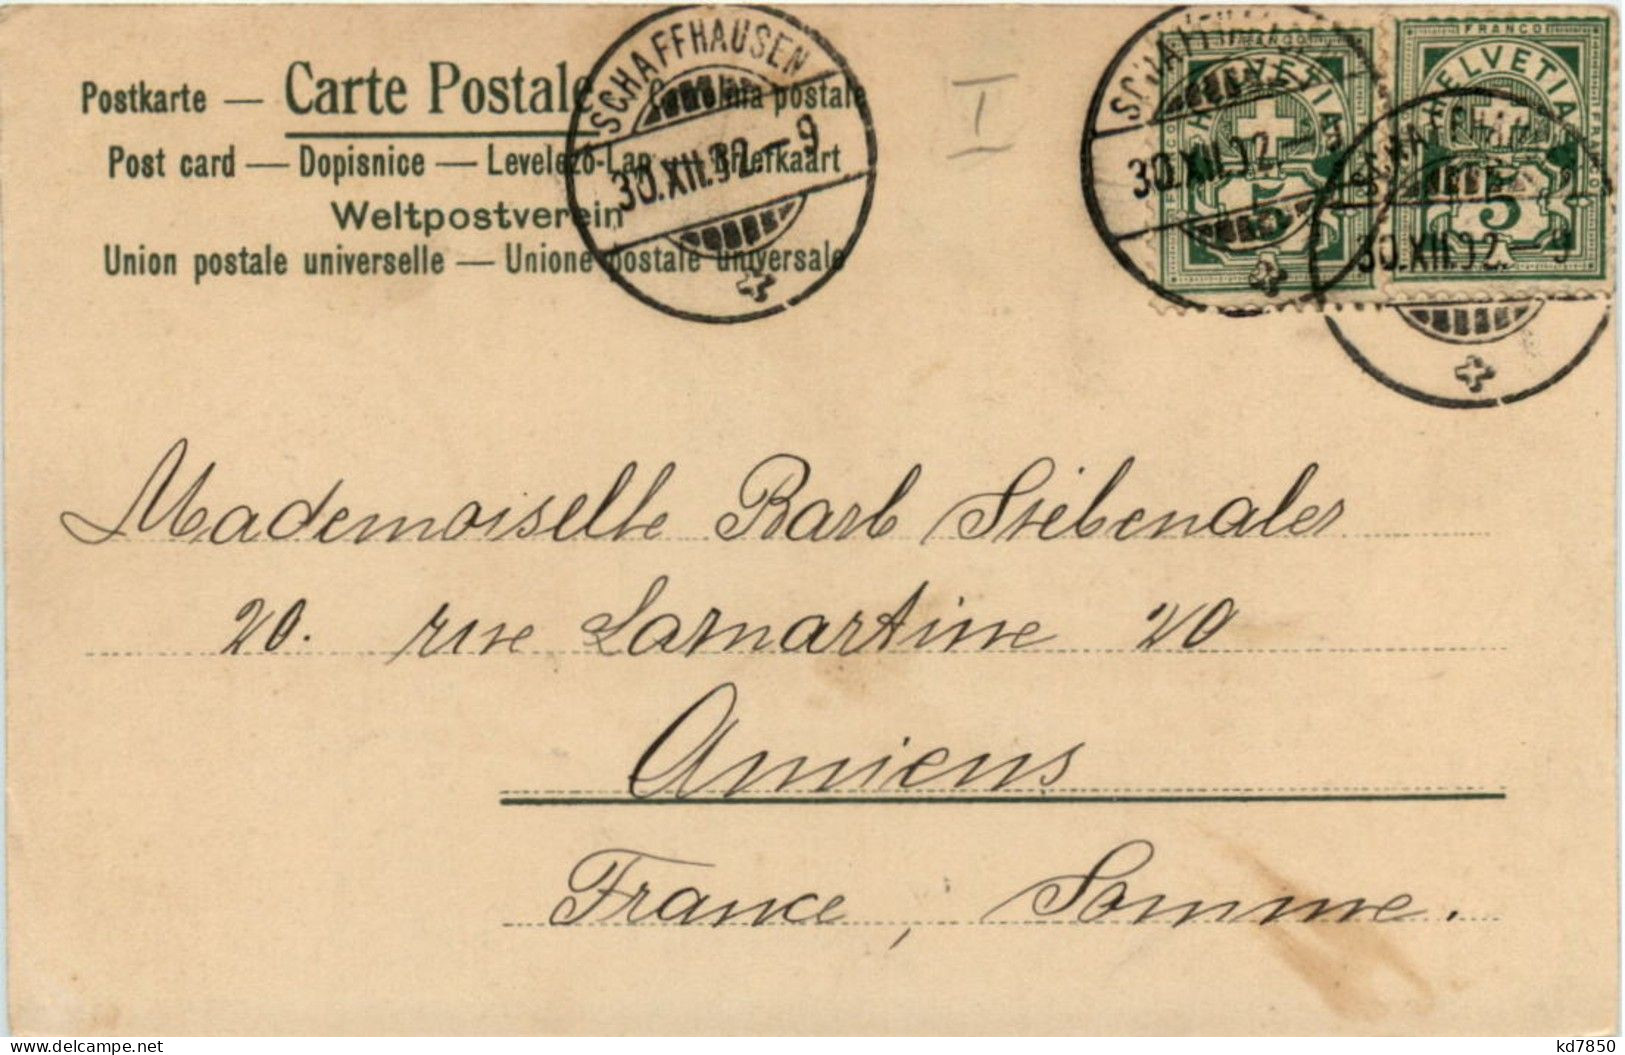 Postkarte — Carte Postale Cartolina postale
Post card — Dopisnice — Levelező-Lap — Briefkaart
Weltpostverein
Union postale universelle — Unione postale universale
SCHAFFHAUSEN
30.XII.02.–9
I
SCHAFFHAUSEN
30.XII.02.–9
FRANCO
HELVETIA
5
FRANCO
HELVETIA
FRANCO
5
SCHAFFHAUSEN
30.XII.02.–9
Mademoiselle Barb Siebenaler
20. rue Lamartine 20
Amiens
France, Somme.
kd7850